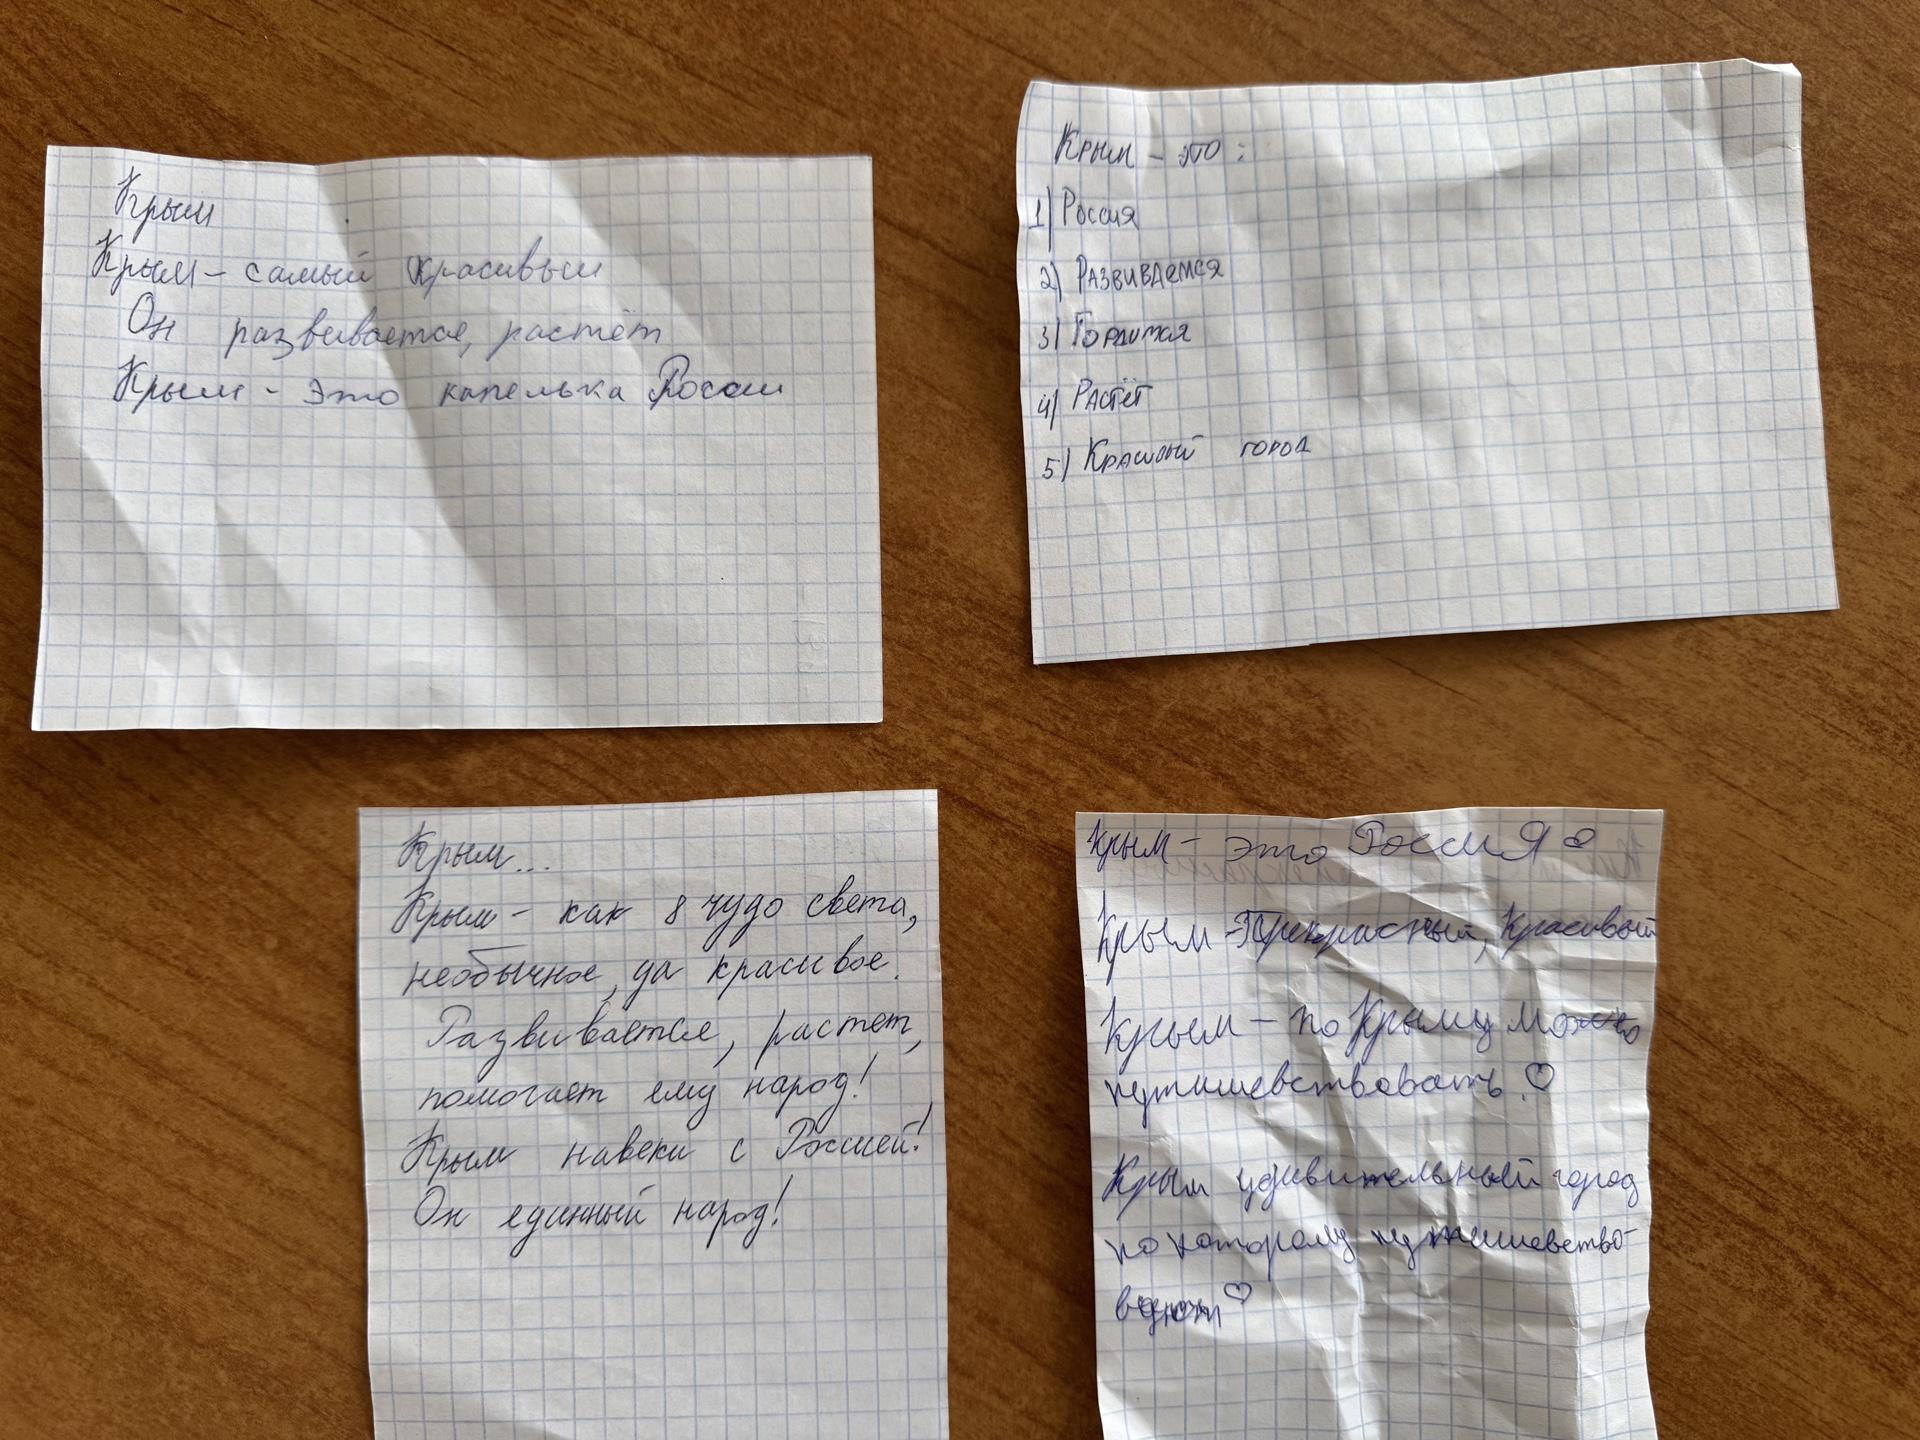 Крым
Крым - самый красивый
Он развивается, растёт
Крым - это капелька России
Крым - это:
1) Россия
2) Развиваемся
3) Гордится
4) Растёт
5) город
Крым...
Крым - как 8 чудо света,
необычное, да красивое.
Развивается, растет,
помогает ему народ!
Крым навеки с Россией!
Он единный народ!
Крым - это Россия
Крым - Прекрасный, Красивый
Крым - по Крыму можно
путишевствовать. ♡
Крым удивительный город
по которому путишевство-
♡